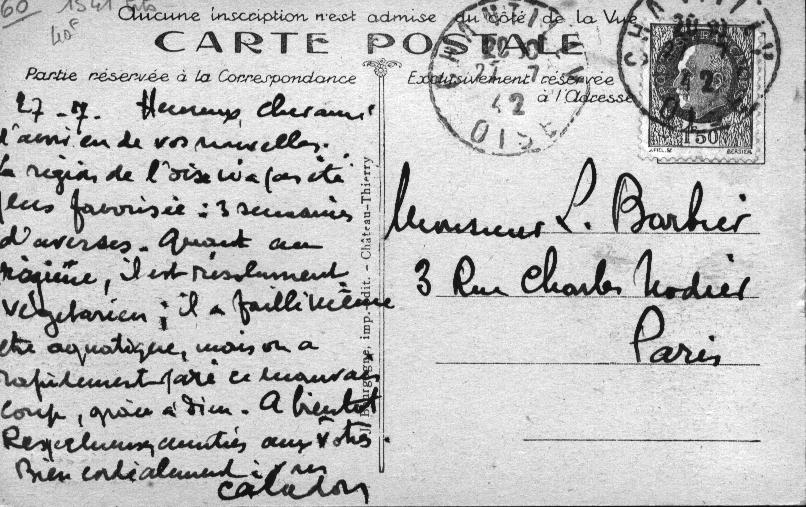 60 1541
40F
Aucune inscription n'est admise du côté de la Vue
CARTE POSTALE
Partie réservée à la Correspondance
Exclusivement réservée
à l'Adresse
CHANTILLY
27-7
42
OISE
CHANTILLY
42
1F50
27-7. Heureux, cher ami
d'avoir eu de vos nouvelles.
La région de l'Oise n'a pas été
plus favorisée : 3 semaines
d'averses. Quant au
régime, il est résolument
végétarien ; il a failli même
être aquatique, mais on a
rapidement paré ce mauvais
coup, grâce à Dieu. A bientôt
Respectueuses amitiés aux vôtres.
Bien cordialement à vous
J. Bourgogne, imp.-édit. - Château-Thierry
Monsieur L. Barbier
3 Rue Charles Nodier
Paris